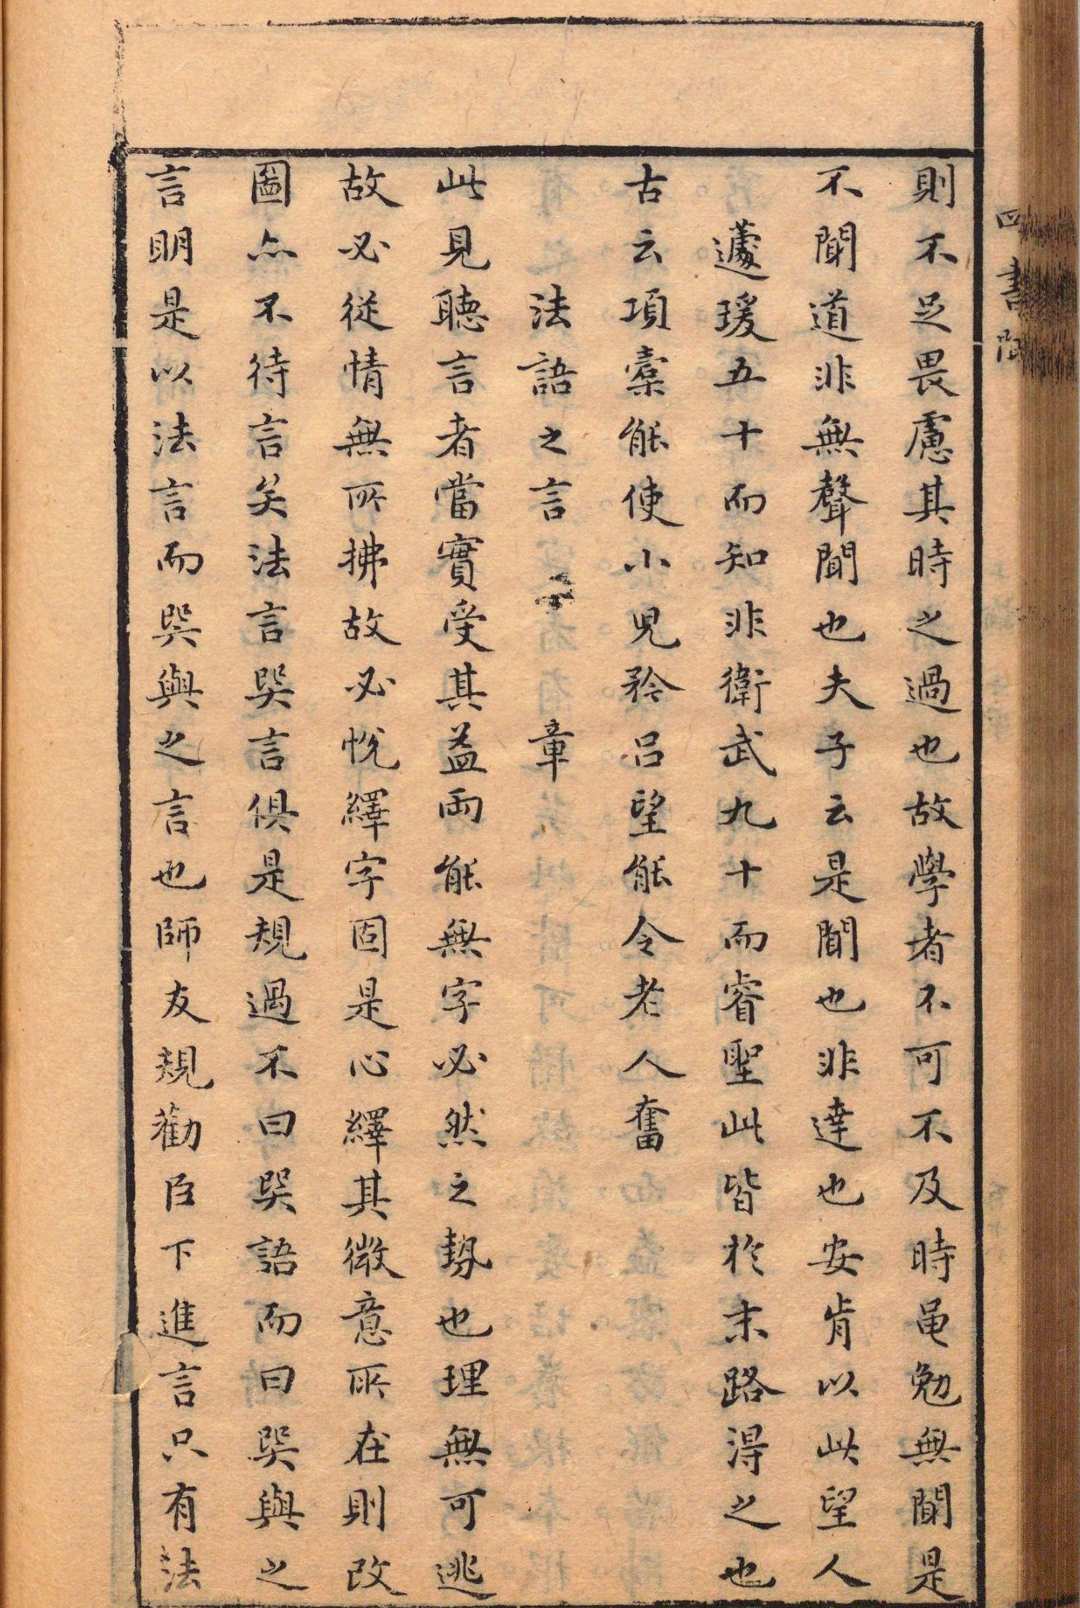 則不足畏慮其時之過也故學者不可不及時黽勉無聞是
不聞道非無聲聞也夫子云是聞也非達也安肯以此望人
蘧瑗五十而知非衛武九十而睿聖此皆於末路得之也
古云項橐能使小兒矜呂望能令老人奮
法語之言 章
此見聽言者當實受其益兩能無字必然之勢也理無可逃
故必從情無所拂故必悅繹字固是心繹其微意所在則改
圖亦不待言矣法言巽言俱是規過不曰巽語而曰巽與之
言明是以法言而巽與之言也師友規勸臣下進言只有法
四書